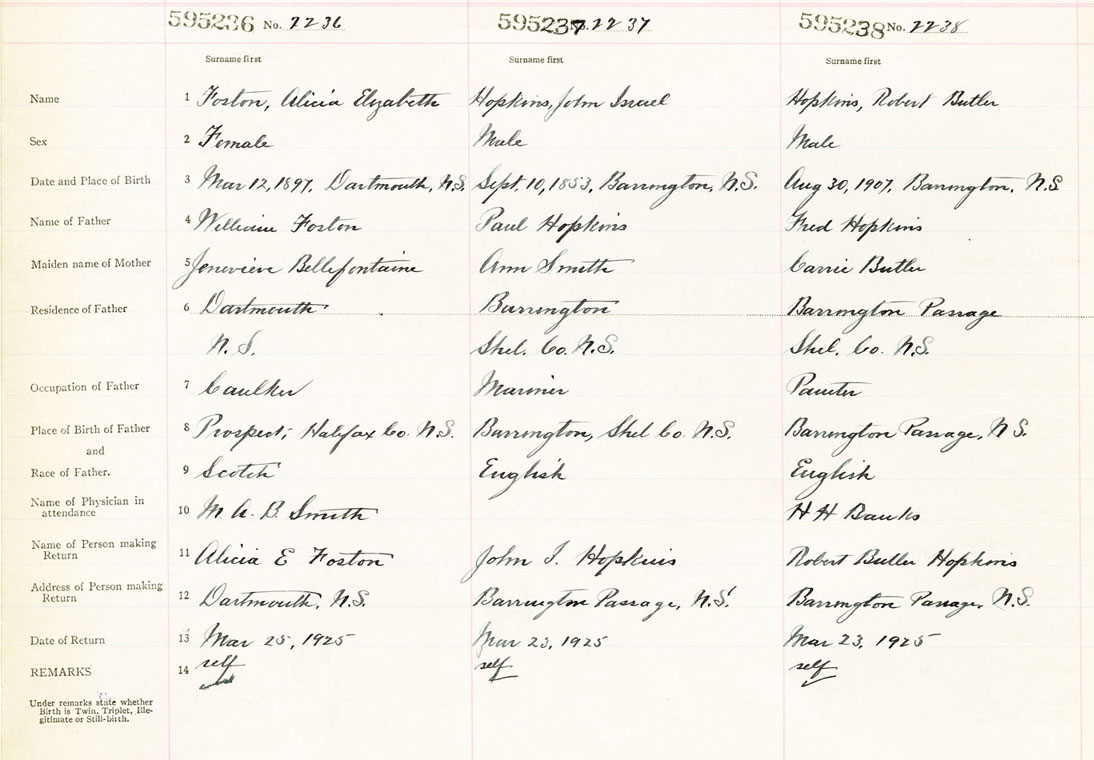 595236 No. 2236 595237 No. 2237 595238 No. 2238
Surname first Surname first Surname first
Name 1 Foston, Alicia Elizabeth Hopkins, John Israel Hopkins, Robert Butler
Sex 2 Female Male Male
Date and Place of Birth 3 Mar 12, 1897, Dartmouth, N.S. Sept. 10, 1853, Barrington, N.S. Aug 30, 1907, Barrington, N.S.
Name of Father 4 William Foston Paul Hopkins Fred Hopkins
Maiden name of Mother 5 Jenevieve Bellefontaine Ann Smith Carrie Butler
Residence of Father 6 Dartmouth Barrington Barrington Passage
N. S. Shel. Co. N.S. Shel. Co. N.S.
Occupation of Father 7 Caulker Mariner Painter
Place of Birth of Father 8 Prospect, Halifax Co. N.S. Barrington, Shel Co. N.S. Barrington Passage, N.S.
and
Race of Father. 9 Scotch English English
Name of Physician in attendance 10 M. A. B. Smith H H Banks
Name of Person making Return 11 Alicia E Foston John I. Hopkins Robert Butler Hopkins
Address of Person making Return 12 Dartmouth, N.S. Barrington Passage, N.S. Barrington Passage, N.S.
Date of Return 13 Mar 25, 1925 Mar 23, 1925 Mar 23, 1925
REMARKS 14 self self self
Under remarks state whether
Birth is Twin, Triplet, Ille-
gitimate or Still-birth.